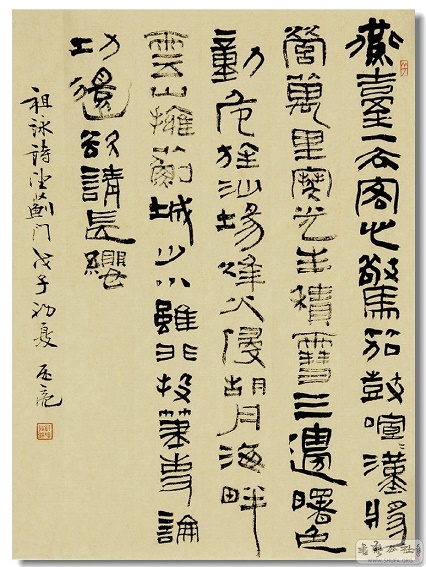 燕臺一去客心驚笳鼓喧〻漢將
營萬里寒光生積雪三邊曙色
動危旌沙場烽火侵胡月海畔
雲山擁薊城少小雖非投筆吏論
功還欲請長纓
祖詠詩望薊門戊子初夏
WWW.SHUFA.ORG